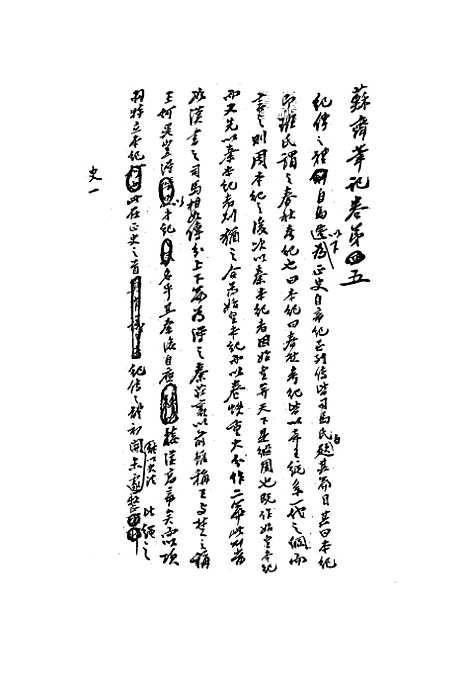 蘇齋筆記卷第五
紀傳之體自馬遷為正史以下自帝紀至列傳皆司馬氏自題其篇目其曰本紀
即班氏謂之春秋考紀也曰本紀曰春秋考紀皆以帝王統系一代之綱而
言之則周本紀之後次以秦本紀者因始皇并天下是繼周也既作始皇本紀
而又先以秦本紀者則猶之合為始皇本紀而以卷帙重大分作二篇此則當
如漢書之司馬相如傳分上下篇為得之秦莊襄以前雖稱王與楚之稱
王何異豈得以本紀名乎且秦滅自應接漢高帝矣而以項
羽特立本紀此在正史之首紀傳之體初開未遽整
比繩之
史一